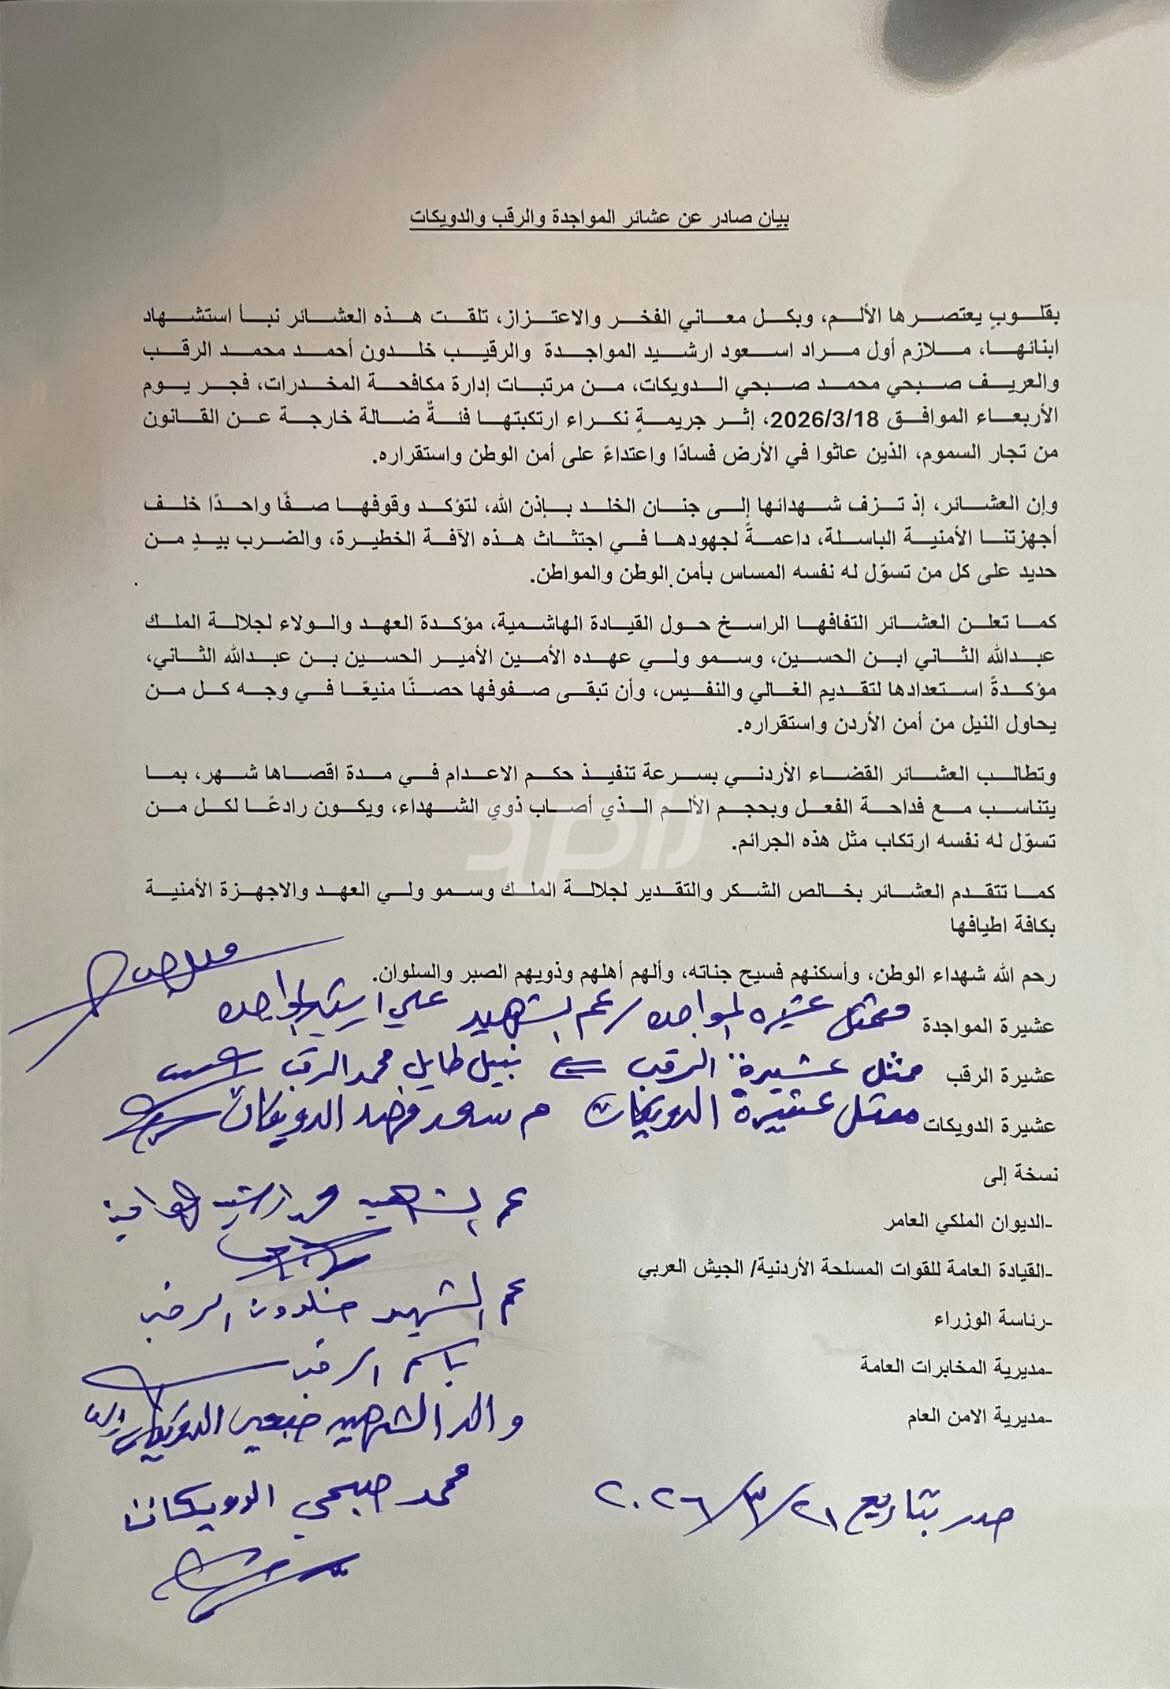 بيان صادر عن عشائر المواجدة والرقب والدويكات
بقلوبٍ يعتصرها الألم، وبكل معاني الفخر والاعتزاز، تلقت هذه العشائر نبأ استشهاد
ابنائها، ملازم أول مراد اسعود ارشيد المواجدة والرقيب خلدون أحمد محمد الرقب
والعريف صبحي محمد صبحي الدويكات، من مرتبات إدارة مكافحة المخدرات، فجر يوم
الأربعاء الموافق 2026/3/18، إثر جريمةٍ نكراء ارتكبتها فئةٌ ضالة خارجة عن القانون
من تجار السموم، الذين عاثوا في الأرض فسادًا واعتداءً على أمن الوطن واستقراره.
وإن العشائر، إذ تزف شهدائها إلى جنان الخلد بإذن الله، لتؤكد وقوفها صفًا واحدًا خلف
أجهزتنا الأمنية الباسلة، داعمةً لجهودها في اجتثاث هذه الآفة الخطيرة، والضرب بيدٍ من
حديد على كل من تسوّل له نفسه المساس بأمن الوطن والمواطن.
كما تعلن العشائر التفافها الراسخ حول القيادة الهاشمية، مؤكدة العهد والولاء لجلالة الملك
عبدالله الثاني ابن الحسين، وسمو ولي عهده الأمين الأمير الحسين بن عبدالله الثاني،
مؤكدةً استعدادها لتقديم الغالي والنفيس، وأن تبقى صفوفها حصنًا منيعًا في وجه كل من
يحاول النيل من أمن الأردن واستقراره.
وتطالب العشائر القضاء الأردني بسرعة تنفيذ حكم الاعدام في مدة اقصاها شهر، بما
يتناسب مع فداحة الفعل وبحجم الألم الذي أصاب ذوي الشهداء، ويكون رادعًا لكل من
تسوّل له نفسه ارتكاب مثل هذه الجرائم.
كما تتقدم العشائر بخالص الشكر والتقدير لجلالة الملك وسمو ولي العهد والاجهزة الأمنية
بكافة اطيافها
رحم الله شهداء الوطن، وأسكنهم فسيح جناته، وألهم أهلهم وذويهم الصبر والسلوان.
عشيرة المواجدة ممثل عشيرة المواجدة / عم الشهيد علي ارشيد المواجدة
عشيرة الرقب ممثل عشيرة الرقب نبيل طايل محمد الرقب
عشيرة الدويكات ممثل عشيرة الدويكات م سعد فهد الدويكات
نسخة إلى
-الديوان الملكي العامر
عم الشهيد ارشيد المواجدة
-القيادة العامة للقوات المسلحة الأردنية/ الجيش العربي
عم الشهيد خلدون الرقب
-رئاسة الوزراء
باسم الرقب
-مديرية المخابرات العامة
والد الشهيد صبحي الدويكات
-مديرية الامن العام
محمد صبحي الدويكات
صدر بتاريخ ٢١/٣/٢٠٢٦